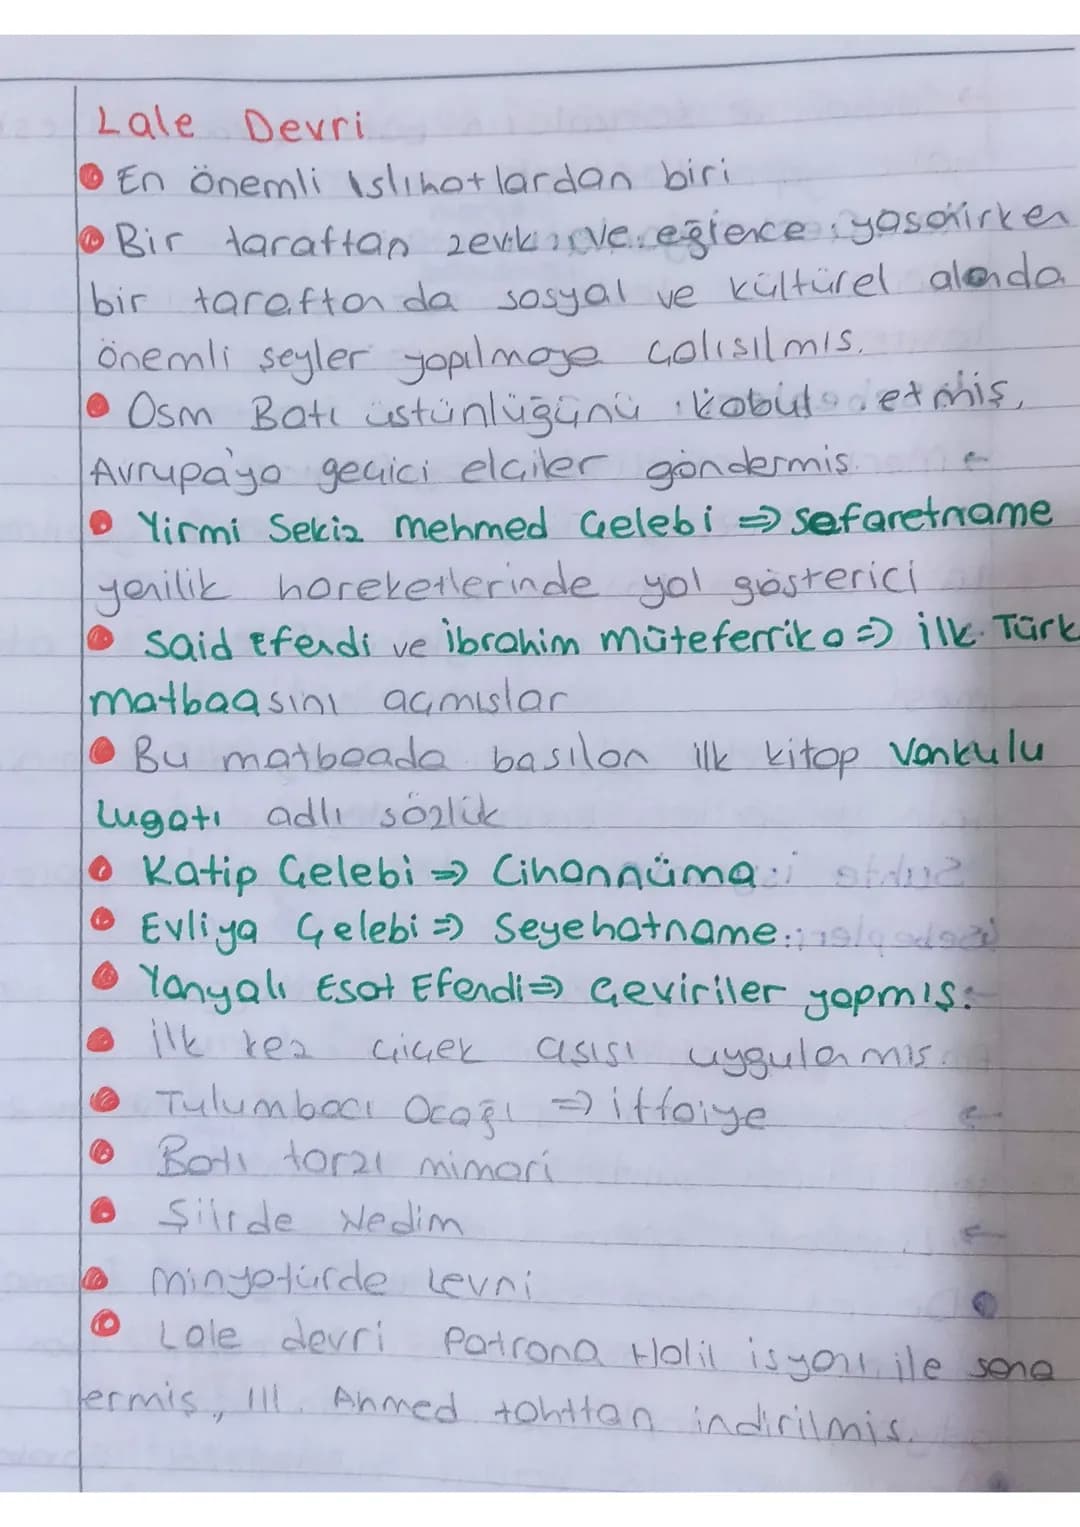 Lale Devri
En önemli ıslıhatlardan biri
Bir taraftan zevk ve eğlence yaşanırken
bir taraftan da sosyal ve kültürel alanda
önemli şeyler yapılmaya çalışılmış.
Osm Batı üstünlüğünü kabul etmiş,
Avrupa'ya geçici elçiler göndermiş.
Yirmi Sekiz Mehmed Çelebi => Sefaretname
yenilik hareketlerinde yol gösterici
Said Efendi ve İbrahim Müteferrika => İlk Türk
matbaasını açmışlar
Bu matbaada basılan ilk kitap Vankulu
Lugatı adlı sözlük
Katip Çelebi => Cihannüma
Evliya Çelebi => Seyehatname
Yanyalı Esat Efendi => Çeviriler yapmış.
İlk kez çiçek aşısı uygulanmış.
Tulumbacı Ocağı => itfaiye
Batı tarzı mimari
Şiirde Nedim
Minyatürde Levni
Lale devri Patrona Halil isyanı ile sona
ermiş, III. Ahmed tahttan indirilmiş.